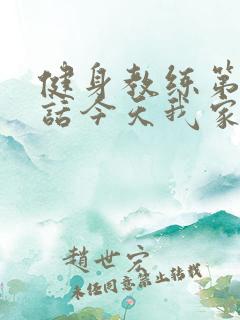 健身教练第
話今天我家
趙世宏
未经同意禁止转载